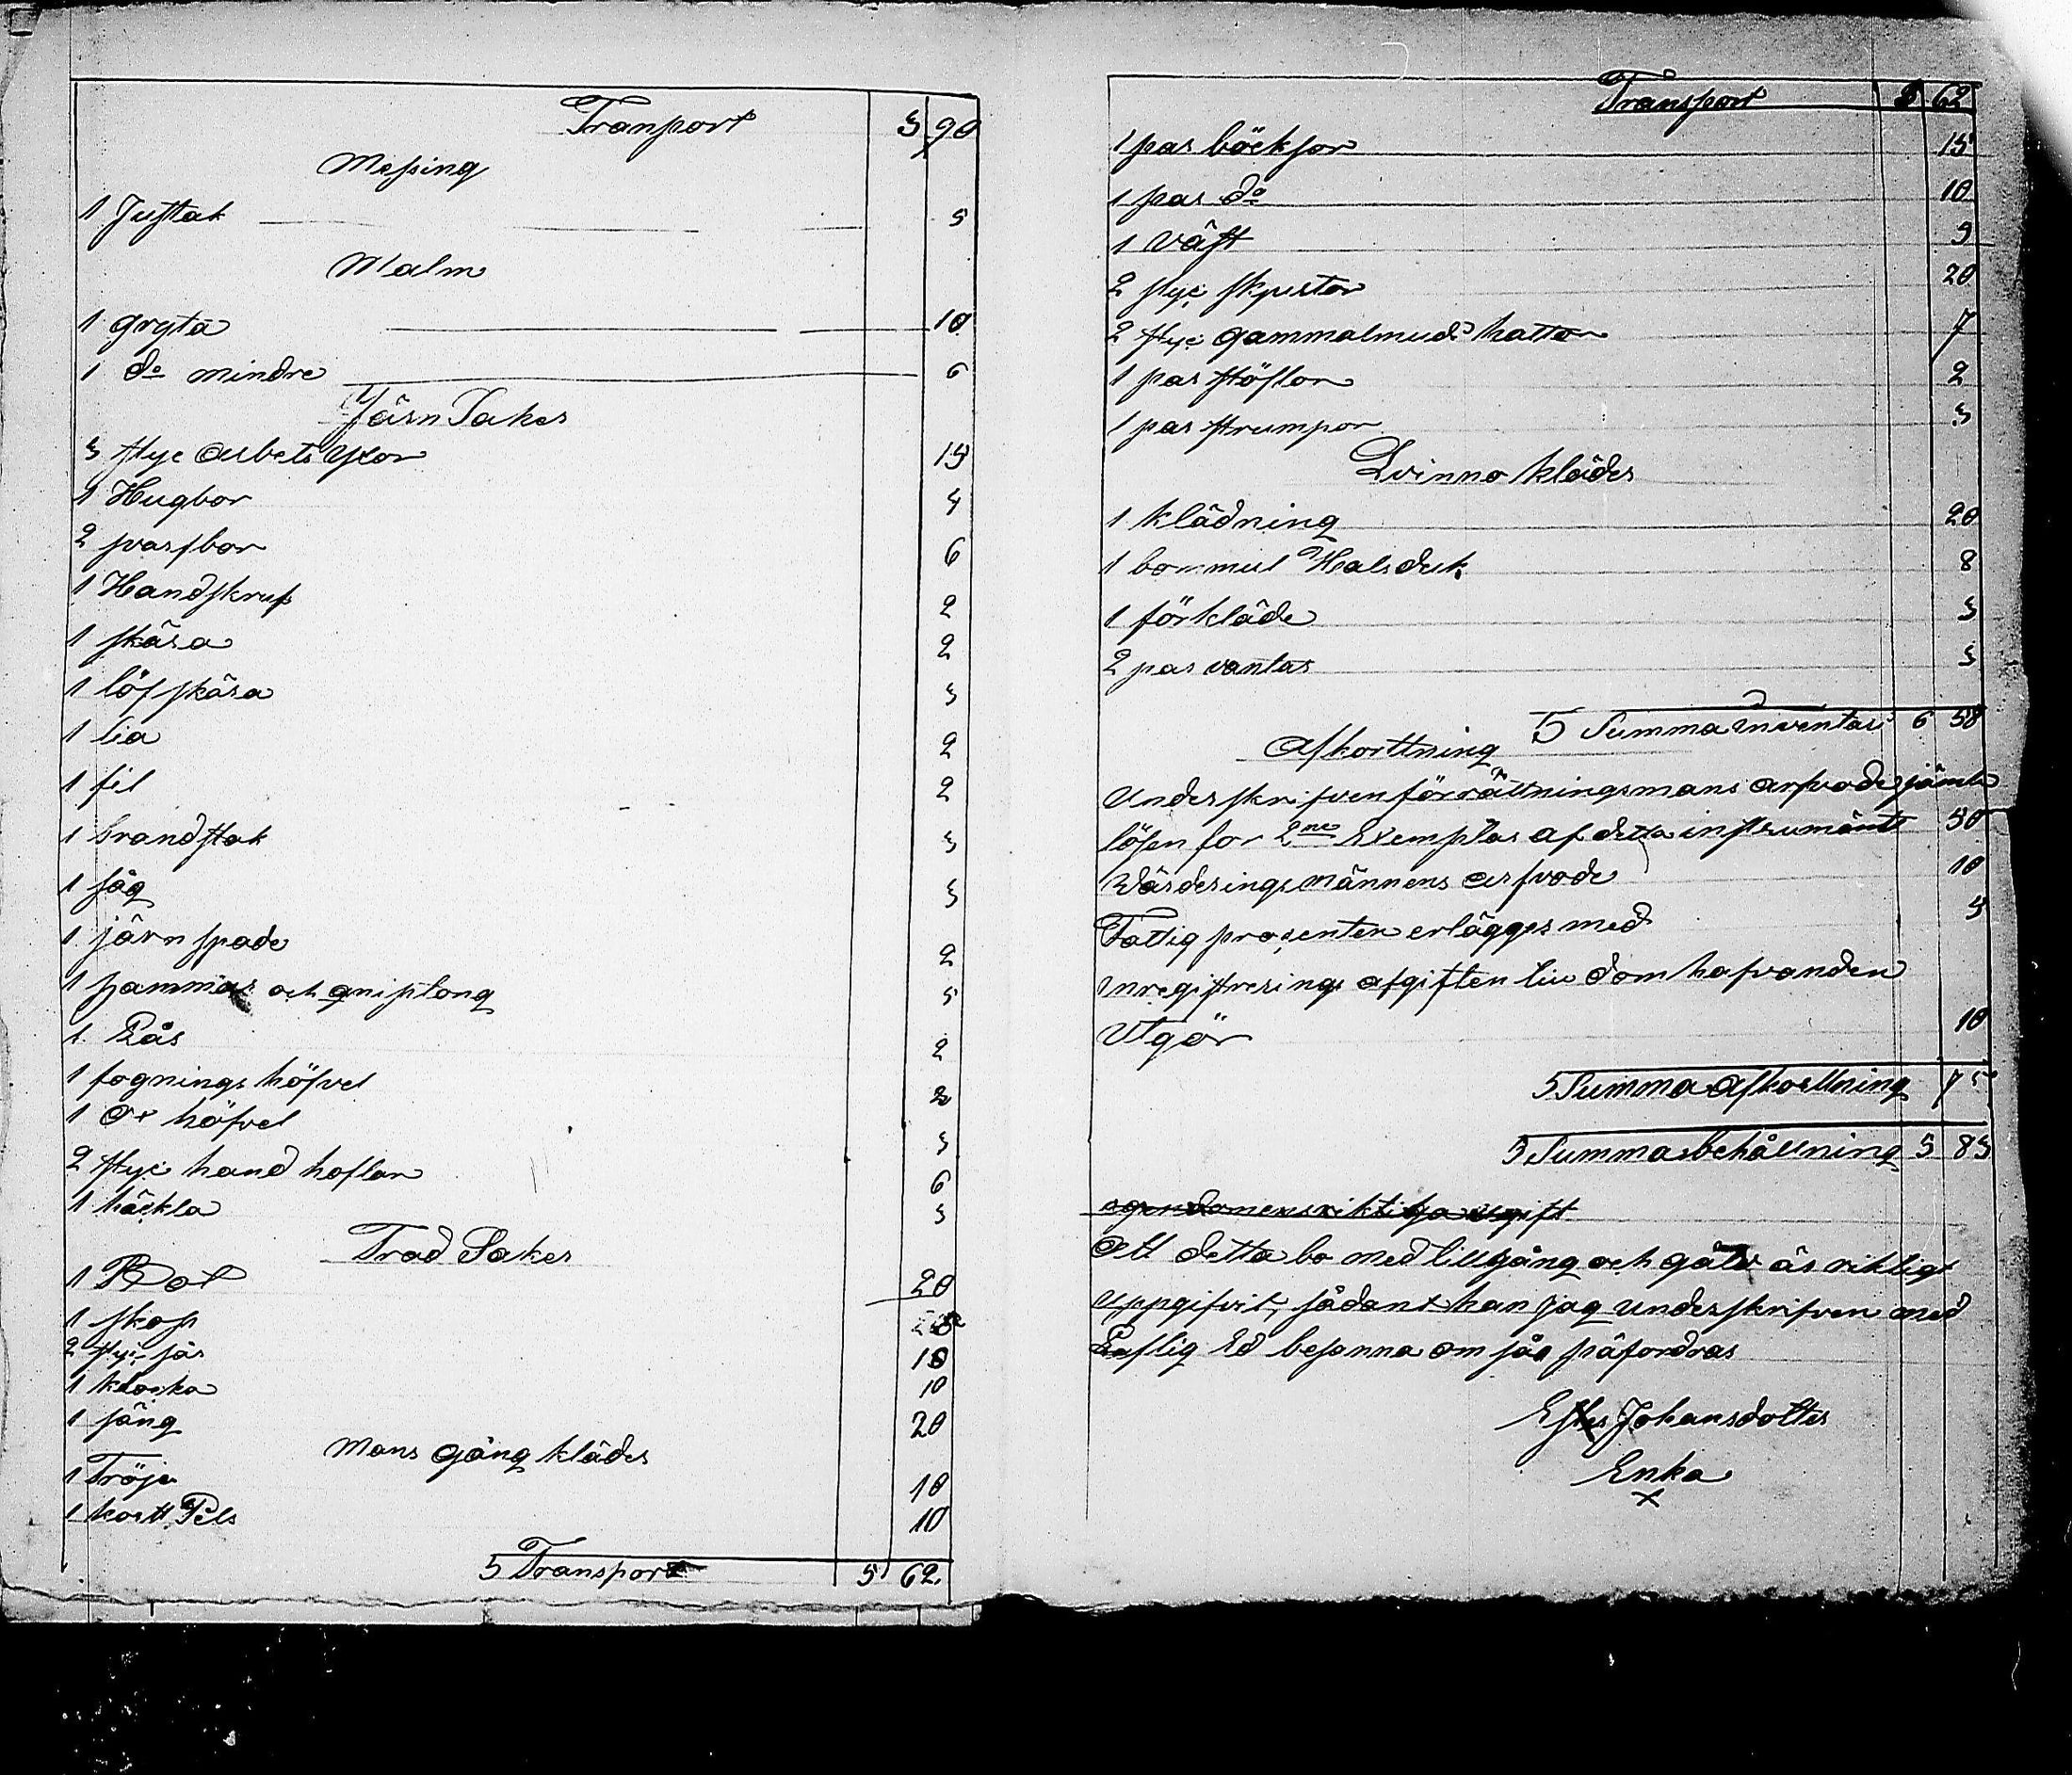 Tranport 3 90
Messing
1 Justak 5
Malm
1 gryta 10
1 do mindre 6
Järn Saker
3 styc arbets yxor 15
1 Hugbor 4
2 parsbor 6
1 Handskruf 2
1 skära 2
1 löf skära 3
1 lia 2
1 fil 2
1 brandstak 3
1 såg 3
1 järn spade 2
1 hammar och kniptong 5
1 Rås 2
1 fognings höfvel 2
1 ox höfvel 3
2 styc hand hoflar 6
1 häckla 3
Träd Saker
1 Bot 20
1 skop
2 styc sår 10
1 klocka 10
1 säng 20
Mans gång kläder
1 Tröja 10
1 kortt Päls 10
5 Transport 5 62.
Transport 5 62
1 par böcksor 15
1 par do 10
1 väst 9
2 styc skjurtor 20
2 styc gammalmuds hattar 7
1 par stöflor 2
1 par strumpor 3
Qvinno kläder
1 klädning 20
1 bommul Halsduk 8
1 förkläde 3
2 par vantar 3
5 Summa inventari 6 58
Afkorttning
Underskrifven förrättningsmans arfvode jämte
lösen for 2ne Exemplar af detta instrumänt 50
Wärderingsmännens arfvode 10
Fattig prosenten erlägges med 5
inregistrerings afgiften till domhafvanden
Utgör 10
5 Summa afkorttning 75
5 Summa behållning 5 83
egendomens riktiga upgift
Att detta bo med tillgång och gäld är riktigt
uppgifvit, sådant kan jag underskrifven med
Eeflig Ed besanna om så påfordras
Ester Johansdotter
Enka
x